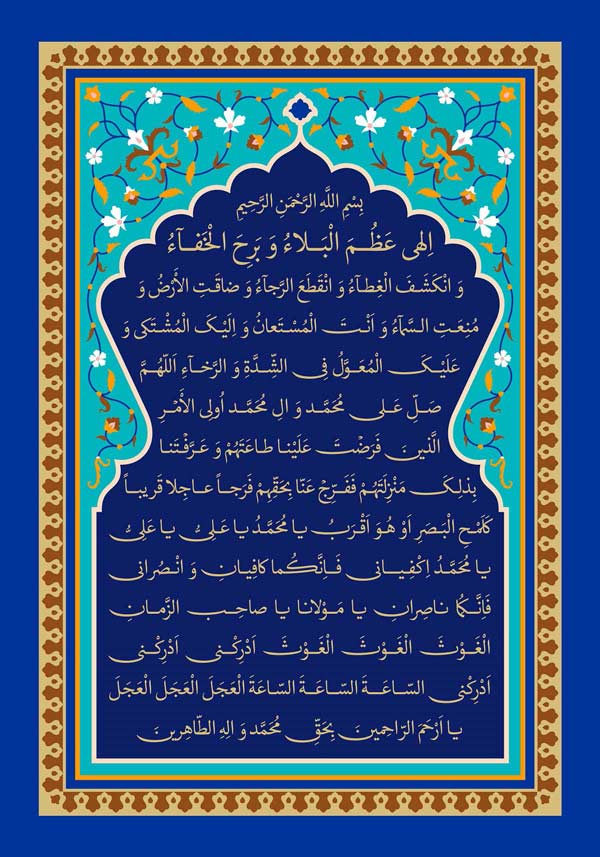 بِسْمِ اللَّهِ الرَّحْمَنِ الرَّحِيمِ
اِلهی عَظُمَ الْبَلاءُ وَ بَرِحَ الْخَفآءُ
وَ انْکَشَفَ الْغِطآءُ وَ انْقَطَعَ الرَّجآءُ وَ ضاقَتِ الأَرْضُ وَ
مُنِعَتِ السَّمآءُ وَ اَنْتَ الْمُسْتَعانُ وَ اِلَیْکَ الْمُشْتَکی وَ
عَلَیْکَ الْمُعَوَّلُ فِی الشِّدَّةِ وَ الرَّخاءِ اَللهُمَّ
صَلِّ عَلی مُحَمَّد وَ الِ مُحَمَّد اُولِی الأَمْرِ
الَّذینَ فَرَضْتَ عَلَیْنا طاعَتَهُمْ وَ عَرَّفْتَنا
بِذلِکَ مَنْزِلَتَهُمْ فَفَرِّجْ عَنّا بِحَقِّهِمْ فَرَجاً عاجِلا قَریباً
کَلَمْحِ الْبَصَرِ اَوْ هُوَ اَقْرَبُ یا مُحَمَّدُ یا عَلِیُّ یا عَلِیُّ
یا مُحَمَّدُ اِکْفِیانی فَاِنَّکُما کافِیانِ وَ انْصُرانی
فَاِنَّکُما ناصِرانِ یا مَوْلانا یا صاحِبَ الزَّمانِ
الْغَوْثَ الْغَوْثَ الْغَوْثَ اَدْرِکْنی اَدْرِکْنی
اَدْرِکْنی السّاعَةَ السّاعَةَ السّاعَةَ الْعَجَلَ الْعَجَلَ الْعَجَلَ
یا اَرْحَمَ الرّاحِمینَ بِحَقِّ مُحَمَّد وَ الِهِ الطّاهِرینَ